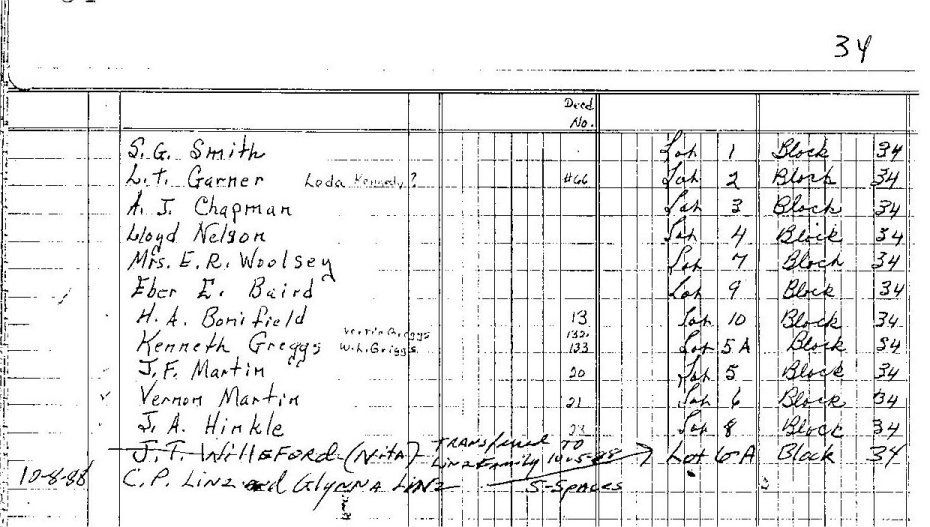 34
Deed
No.
S.G. Smith Lot 1 Block 34
L.T. Garner Leda Kennedy? #66 Lot 2 Block 34
A. J. Chapman Lot 3 Block 34
Lloyd Nelson Lot 4 Block 34
Mrs. E.R. Woolsey Lot 7 Block 34
Eber E. Baird Lot 9 Block 34
H.A. Bonifield 13 Lot 10 Block 34
Vertie Greggs 132
Kenneth Greggs W.L. Griggs 133 Lot 5A Block 34
J.F. Martin 20 Lot 5 Block 34
Vernon Martin 21 Lot 6 Block 34
J.A. Hinkle Lot 8 Block 34
J.T. Willeford (Nita) Transferred to
Linz Family Lot 6-A Block 34
10-8-88 C.P. Linz and Glynna Linz 5-Spaces